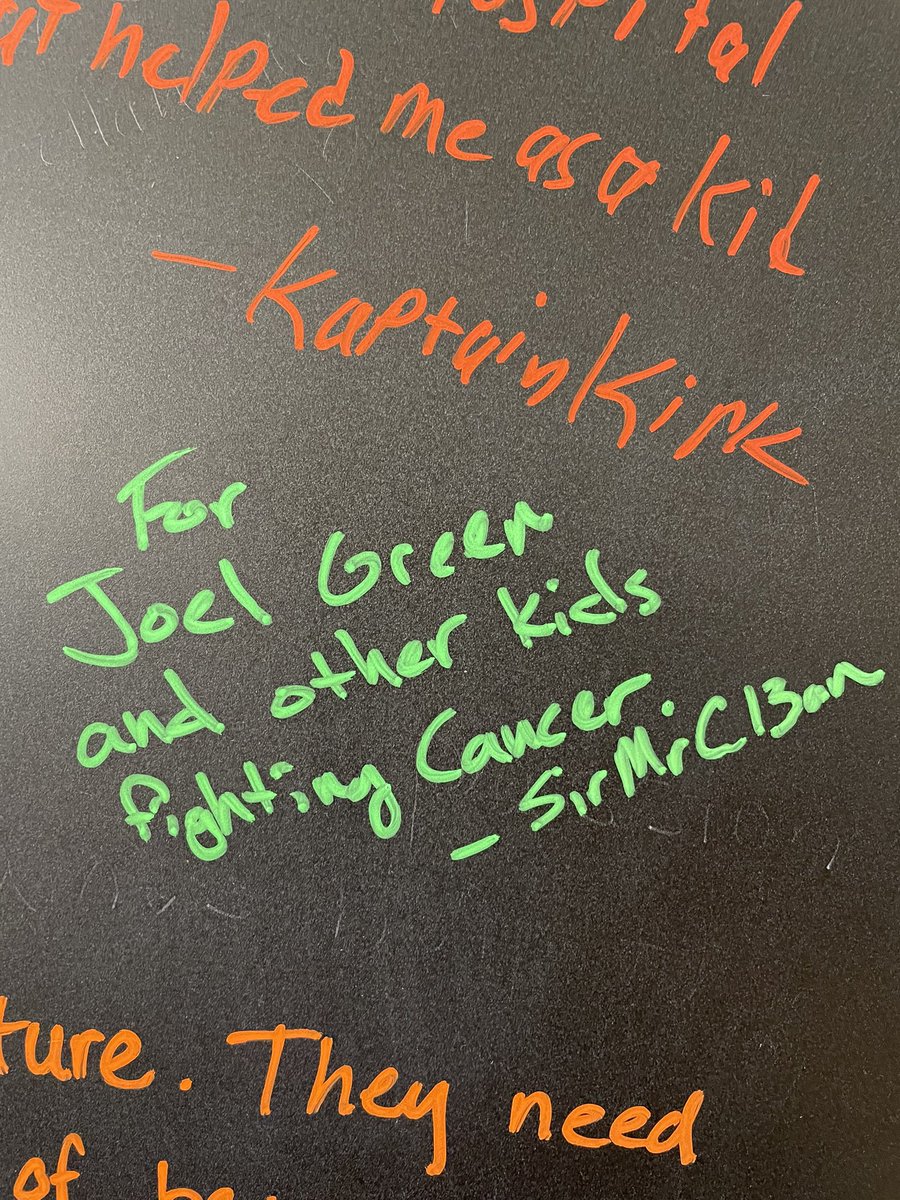 hospital
at helped me as a kid
- Kaptain Kirk
For
Joel Green
and other kids
fighting Cancer.
- SirMrCl3an
ture. They need
of